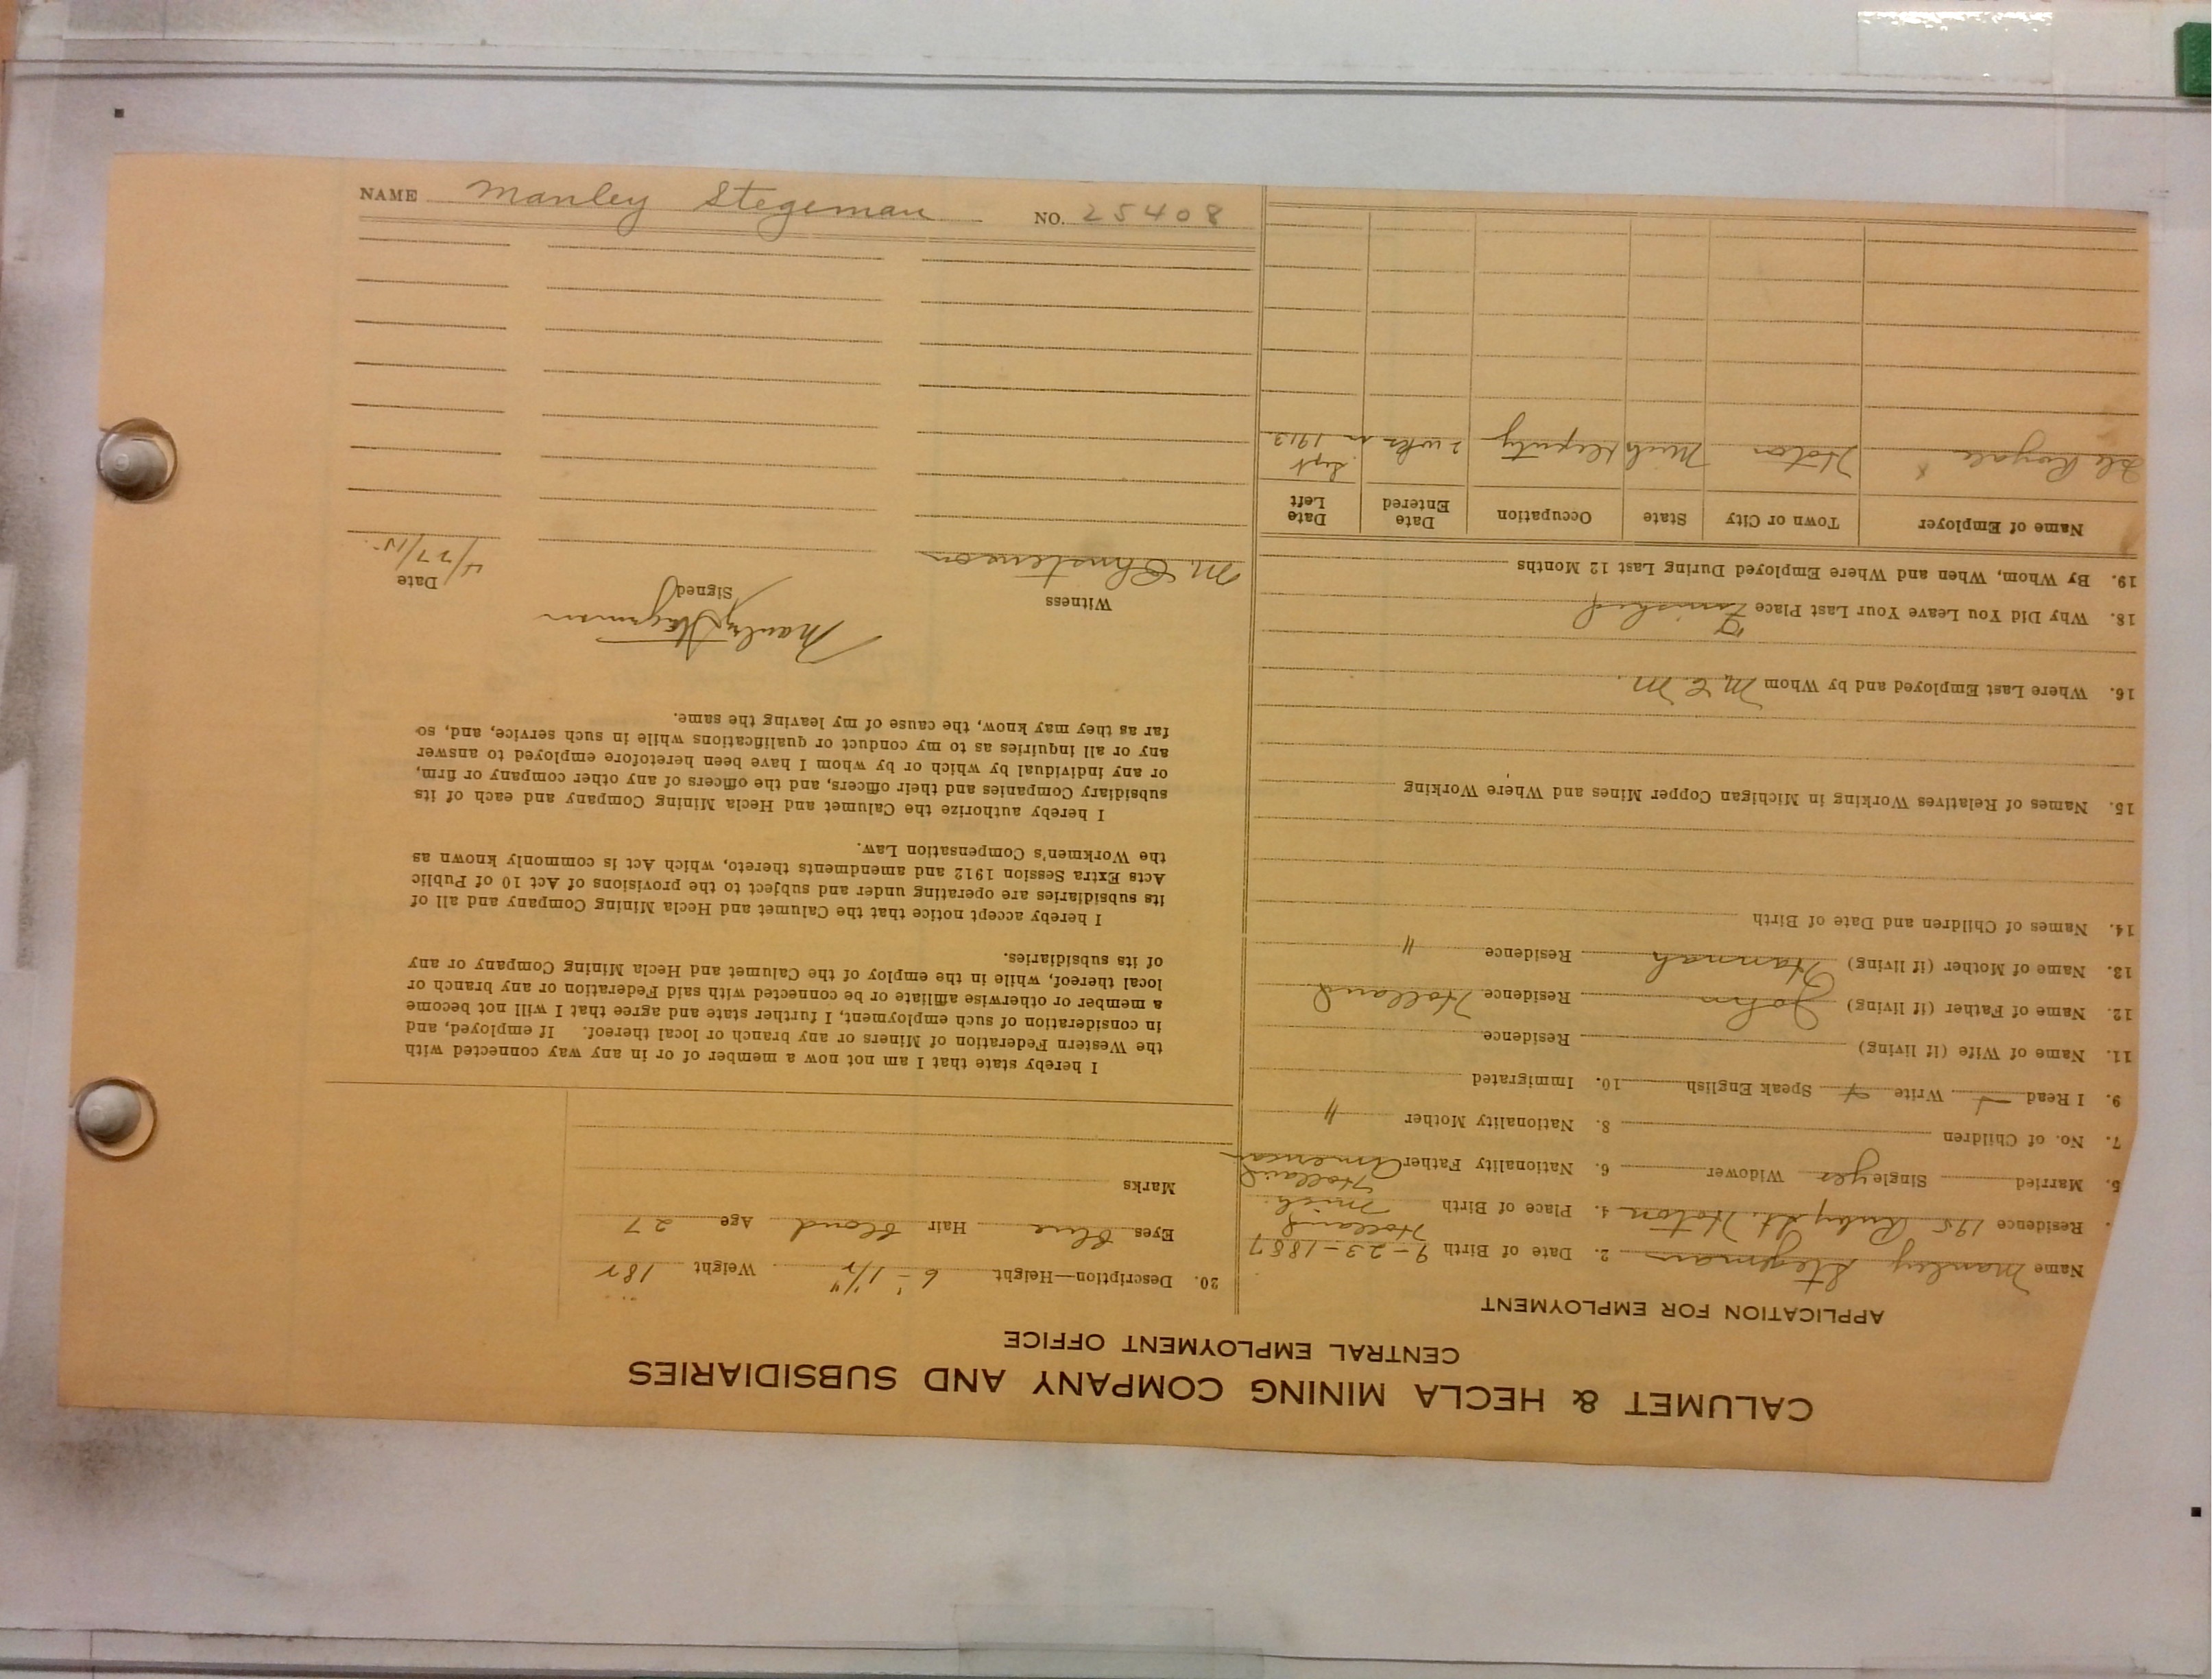 CALUMET & HECLA MINING COMPANY AND SUBSIDIARIES
CENTRAL EMPLOYMENT OFFICE
APPLICATION FOR EMPLOYMENT
Name Manley Stegeman 2. Date of Birth 9-23-1887
Residence 195 Ruby St. Hoton 4. Place of Birth Holland Mich.
5. Married Single yes Widower 6. Nationality Father Holland American
7. No. of Children 8. Nationality Mother "
9. I Read Write Speak English 10. Immigrated
11. Name of Wife (if living) Residence
12. Name of Father (if living) John Residence Holland
13. Name of Mother (if living) Hannah Residence "
14. Names of Children and Date of Birth
15. Names of Relatives Working in Michigan Copper Mines and Where Working
16. Where Last Employed and by Whom M. C. M.
18. Why Did You Leave Your Last Place Finished
19. By Whom, When and Where Employed During Last 12 Months
Name of Employer Town or City State Occupation Date Entered Date Left
Isle Royale x Hoton Mich Deputy 2 wks in Sept 1913
20. Description—Height 6'-1 1/2" Weight 182
Eyes Blue Hair Blond Age 27
Marks
I hereby state that I am not now a member of or in any way connected with
the Western Federation of Miners or any branch or local thereof. If employed, and
in consideration of such employment, I further state and agree that I will not become
a member or otherwise affiliate or be connected with said Federation or any branch or
local thereof, while in the employ of the Calumet and Hecla Mining Company or any
of its subsidiaries.
I hereby accept notice that the Calumet and Hecla Mining Company and all of
its subsidiaries are operating under and subject to the provisions of Act 10 of Public
Acts Extra Session 1912 and amendments thereto, which Act is commonly known as
the Workmen's Compensation Law.
I hereby authorize the Calumet and Hecla Mining Company and each of its
subsidiary Companies and their officers, and the officers of any other company or firm,
or any individual by which or by whom I have been heretofore employed to answer
any or all inquiries as to my conduct or qualifications while in such service, and, so
far as they may know, the cause of my leaving the same.
Manley Stegeman
Witness Signed Date
M. Christenson 4/27/15
NAME Manley Stegeman NO. 25408